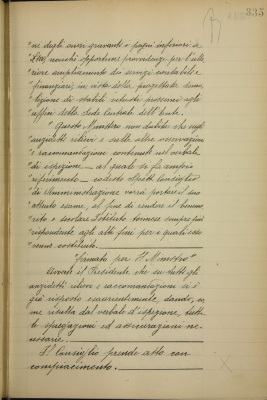 335
"ne degli oneri gravanti i pegni inferiori a
"L. 100, nonché opportuni provvedimenti per l'ulte
"riore ampliamento dei servizi contabili e
"finanziari, in vista della progettata demo
"lizione di stabili vetusti prossimi agli
"uffici della Sede Centrale dell'Ente.
"Questo Ministero non dubita che sugli
"anzidetti rilievi e sulle altre osservazioni
"e raccomandazioni contenute nel verbale
"di ispezione — al quale si fa ampio
"riferimento — codesto Consiglio
"di Amministrazione vorrà portare il suo
"attento esame, al fine di rendere il beneme
"rito e secolare Istituto torinese sempre più
"rispondente agli alti fini per i quali esso
"venne costituito.
"firmato per Il Ministro"
Avverte il Presidente che su tutti gli
anzidetti rilievi e raccomandazioni si è
già risposto esaurientemente, dando, co
me risulta dal verbale d'ispezione, tut
te spiegazioni ed assicurazioni ne-
cessarie.
Il Consiglio prende atto con
compiacimento.